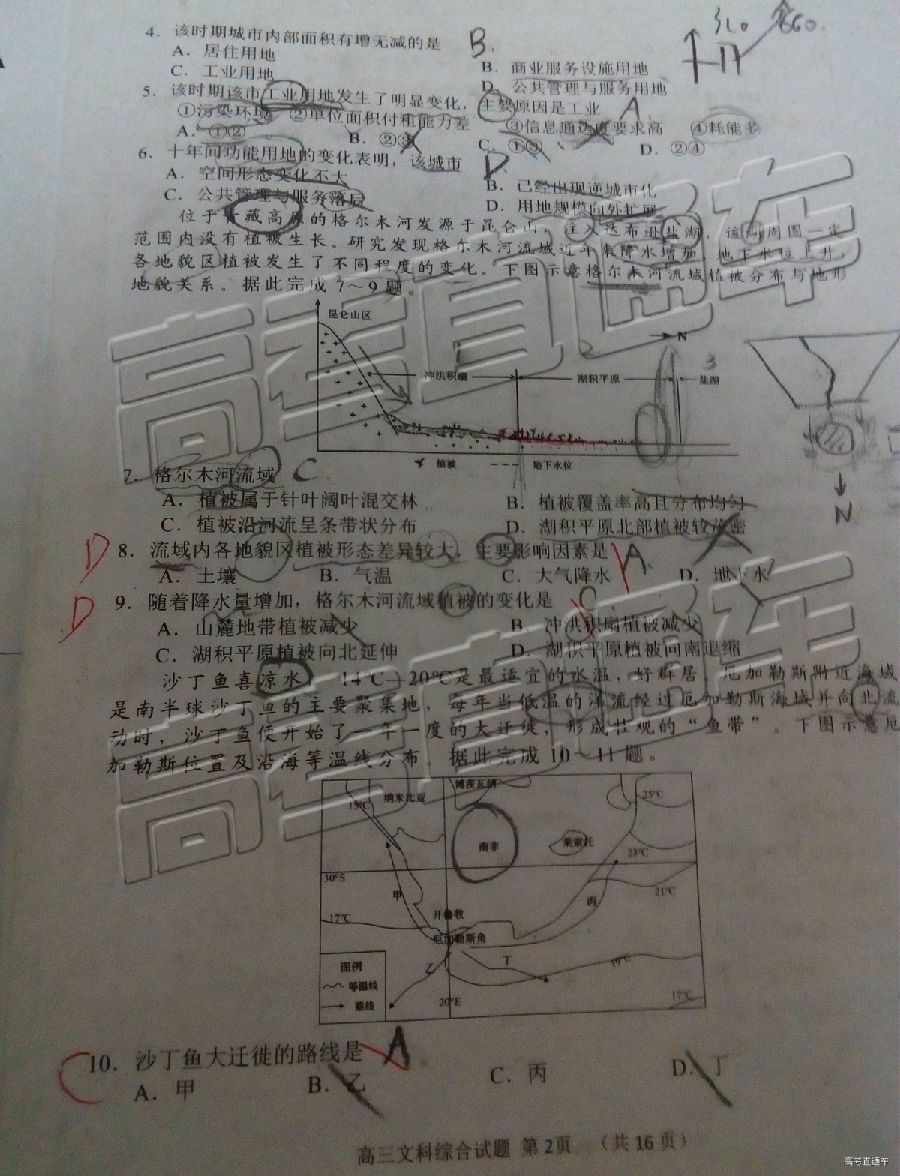 4. 该时期城市内部面积有增无减的是
B.
30 660.
A. 居住用地
B. 商业服务设施用地
C. 工业用地
D. 公共管理与服务用地
5. 该时期该市工业用地发生了明显变化，主要原因是工业 A
①污染环境 ②单位面积付租能力差 ③信息通达度要求高 ④耗能多
A. ①② B. ②③ C. ①③ D. ②④
6. 十年间功能用地的变化表明，该城市 D
A. 空间形态变化不大
B. 已经出现逆城市化
C. 公共管理与服务落后
D. 用地规模向外扩展
位于青藏高原的格尔木河发源于昆仑山，注入达布逊盐湖，该湖周围一定
范围内没有植被生长。研究发现格尔木河流域近年来降水增加，地下水位上升，
各地貌区植被发生了不同程度的变化。下图示意格尔木河流域植被分布与地形
地貌关系。据此完成7～9题。
昆仑山区
N
1 2 3
冲洪积扇 湖积平原 盐湖
植被 地下水位
N
7. 格尔木河流域 C
A. 植被属于针叶阔叶混交林
B. 植被覆盖率高且分布均匀
C. 植被沿河流呈条带状分布
D. 湖积平原北部植被较茂密
D 8. 流域内各地貌区植被形态差异较大，主要影响因素是 A
A. 土壤 B. 气温 C. 大气降水 D. 地下水
D 9. 随着降水量增加，格尔木河流域植被的变化是 C
A. 山麓地带植被减少
B. 冲洪积扇植被减少
C. 湖积平原植被向北延伸
D. 湖积平原植被向南退缩
沙丁鱼喜凉水，14℃—20℃是最适宜的水温，好群居，厄加勒斯附近海域
是南半球沙丁鱼的主要聚集地，每年当低温的洋流经过厄加勒斯海域并向北流
动时，沙丁鱼便开始了一年一度的大迁徙，形成壮观的“鱼带”。下图示意厄
加勒斯位置及沿海等温线分布。据此完成10～11题。
15℃ 纳米比亚 博茨瓦纳 25℃
南非 莱索托
23℃
30°S
21℃
甲 丙
17℃ 开普敦
厄加勒斯角
图例
乙 丁 19℃
等温线
路线
20°E 17℃
C 10. 沙丁鱼大迁徙的路线是 A
A. 甲 B. 乙 C. 丙 D. 丁
高三文科综合试题 第2页 （共16页）
高考直通车
高考直通车
高考直通车